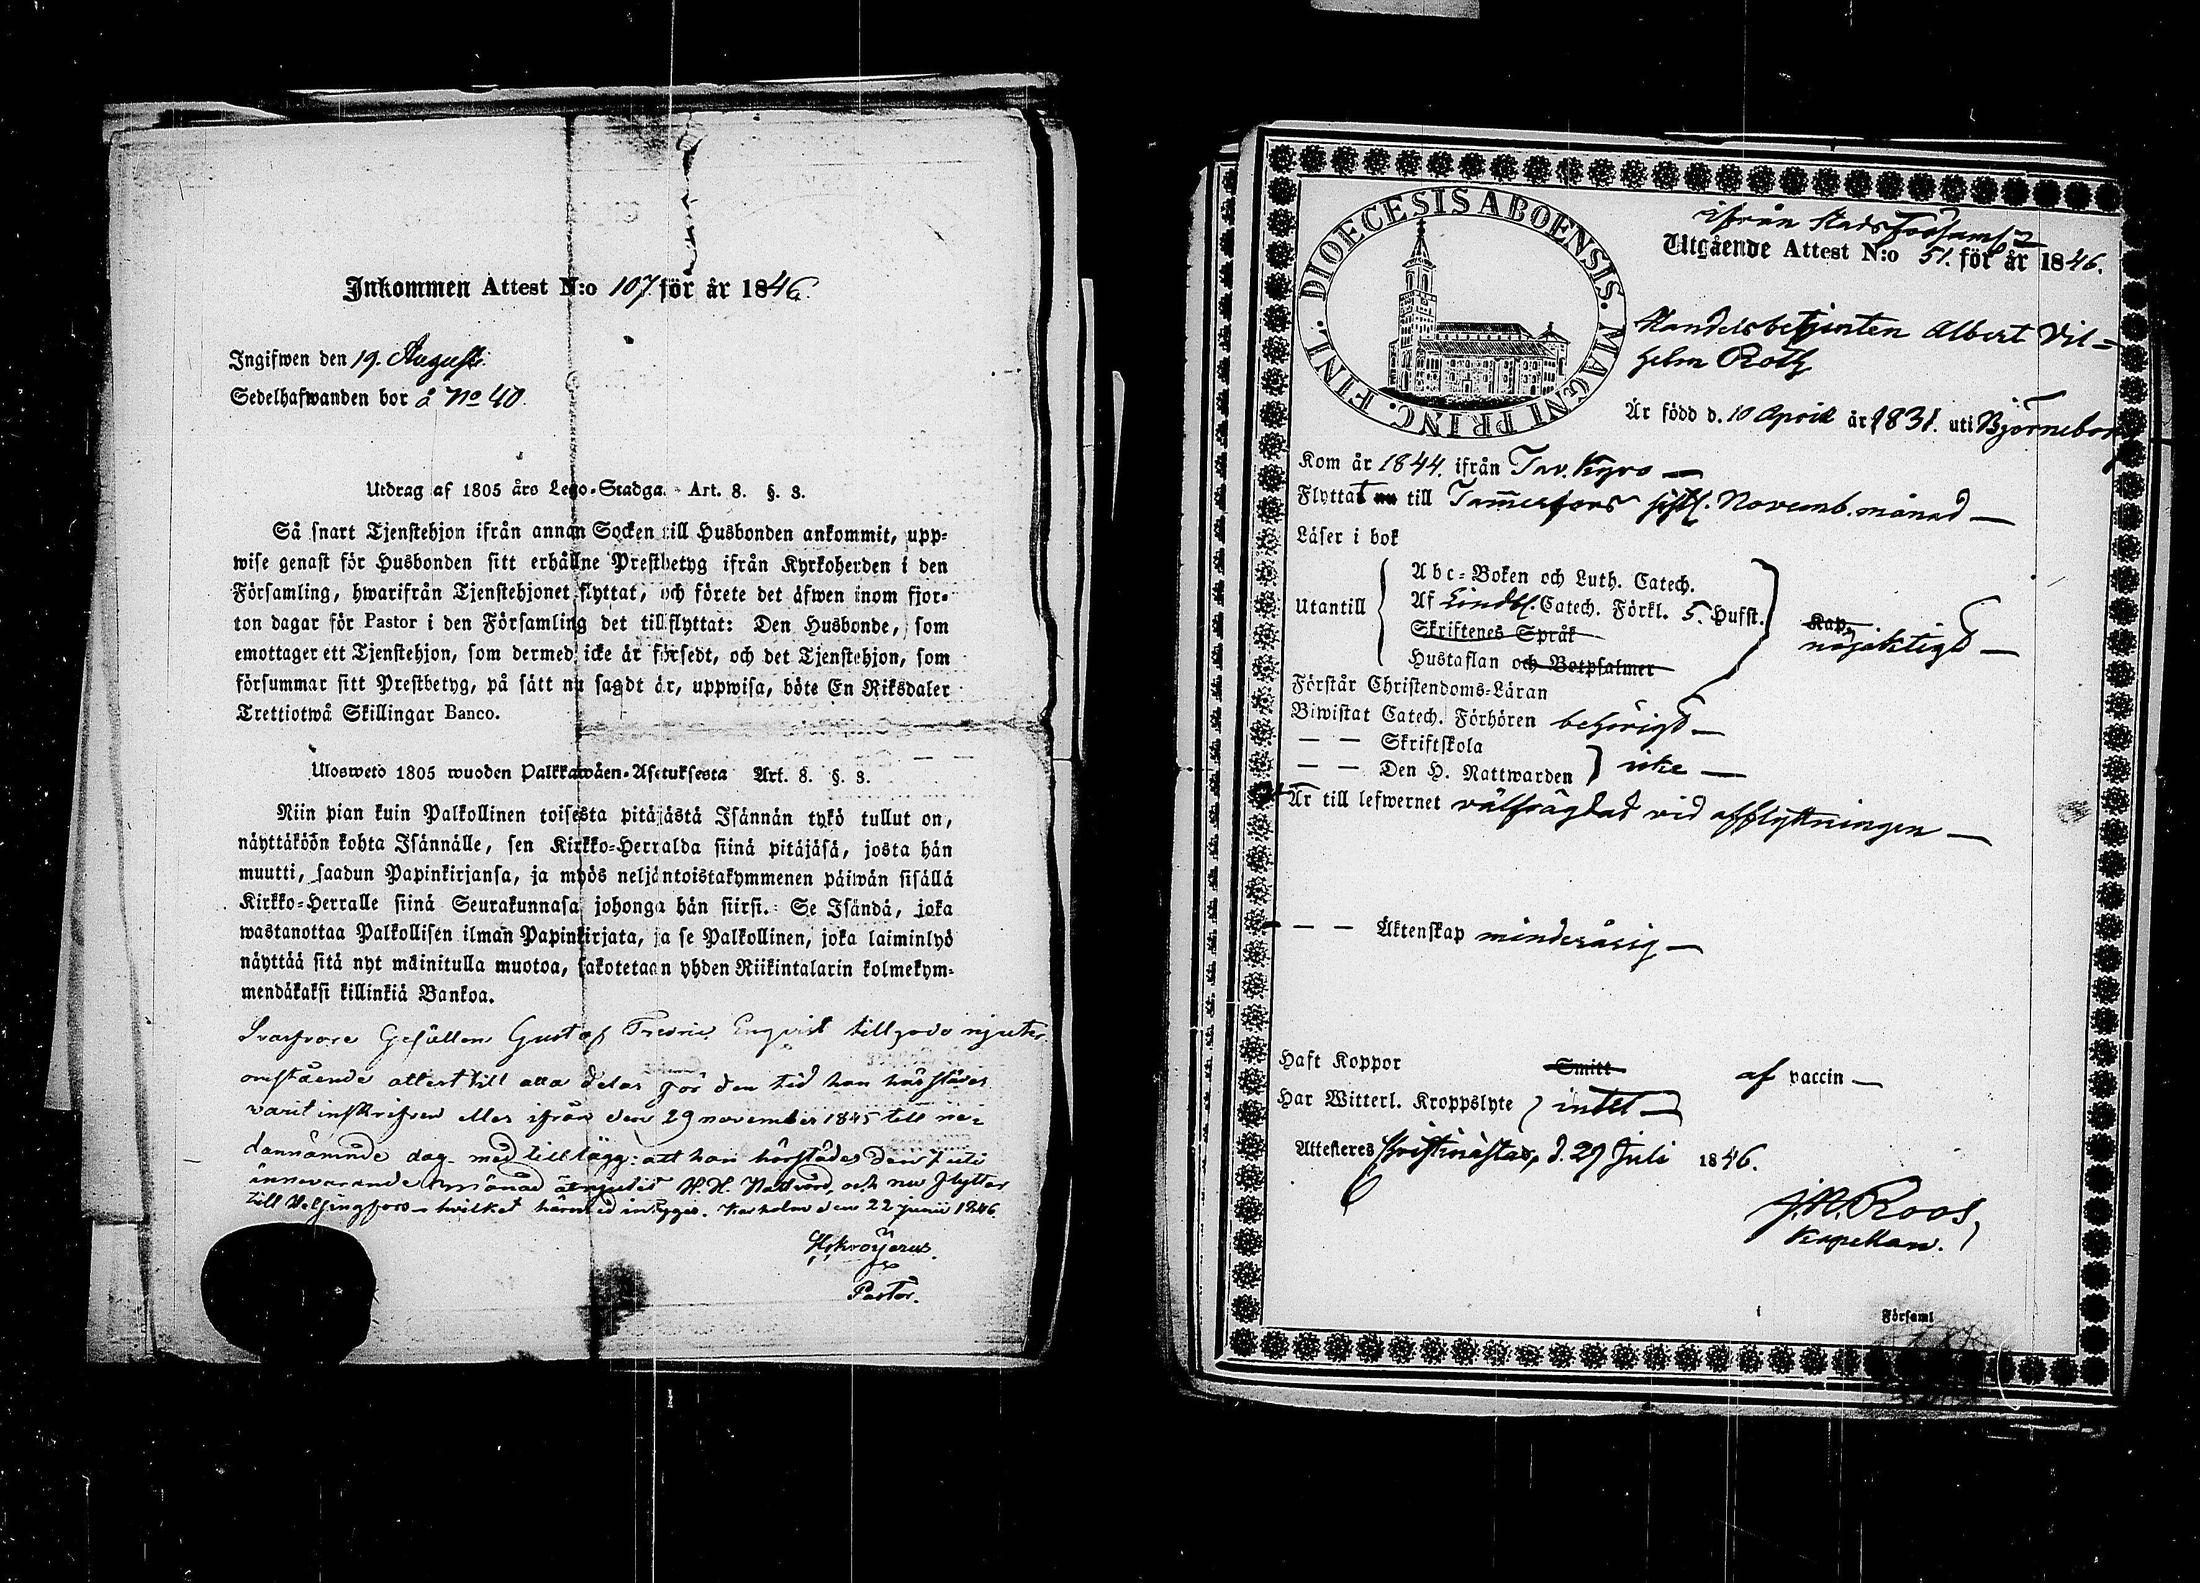 Inkommen Attest N:o 107. för år 1846.
Ingifwen den 19. August.
Sedelhafwanden bor å No 40.
Utdrag af 1805 års Lego-Stadga. Art. 8. §. 3.
Så snart Tjenstehjon ifrån annan Socken till Husbonden ankommit, upp-
wise genast för Husbonden sitt erhållne Prestbetyg ifrån Kyrkoherden i den
Församling, hwarifrån Tjenstehjonet flyttat, och förete det äfwen inom fjor-
ton dagar för Pastor i den Församling det tillflyttat: Den Husbonde, som
emottager ett Tjenstehjon, som dermed icke är försedt, och det Tjenstehjon, som
försummar sitt Prestbetyg, på sätt nu sagdt är, uppwisa, böte En Riksdaler
Trettiotwå Skillingar Banco.
Ulosweto 1805 wuoden Palkkawäen-Asetuksesta Art. 8. §. 3.
Niin pian kuin Palkollinen toisesta pitäjästä Isännän tykö tullut on,
näyttäköön kohta Isännälle, sen Kirkko-Herralda siinä pitäjäsä, josta hän
muutti, saadun Papinkirjansa, ja myös neljäntoistakymmenen päiwän sisällä
Kirkko-Herralle siinä Seurakunnasa johonga hän siirsi. Se Isändä, joka
wastanottaa Palkollisen ilman Papinkirjata, ja se Palkollinen, joka laiminlyö
näyttää sitä nyt mainitulla muotoa, sakotetaan yhden Riikintalarin kolmekym-
mendäkaksi killinkiä Bankoa.
Svarfvare Gesällen Gustaf Fredric Enqvist tillgodo njuter
omstående attest till alla delar för den tid han härstädes
varit inskrifven eller ifrån den 29 november 1845 till ne-
dannämnde dag med tillägg: att han härstädes den 7
innevarande månad åtnjutit H. H. Nattvard, och nu flyttar
till Helsingfors hvilket härmed intygas. den 22 junii 1846.
Pastor.
DIOECESIS ABOENSIS. MAGNI PRINC. FINL.
ifrån Stads Församl
Utgående Attest N:o 51. för år 1846.
Handelsbetjenten Albert Vil-
helm Roth
Är född d. 10 April år 1831. uti Björneborg
Kom år 1844. ifrån Tav. Kyro —
Flyttat till Tammerfors sistl. Novemb. månad —
Läser i bok
Utantill
Abc-Boken och Luth. Catech.
Af Lindbl. Catech. Förkl. 5. Hufst.
Skriftenes Språk
Hustaflan och Botpsalmer
Kap.
nöjaktigt —
Förstår Christendoms-Läran
Biwistat Catech. Förhören behörigt —
— — Skriftskola
— — Den H. Nattwarden } icke —
Är till lefwernet välfrägdad vid afflyttningen —
— — Äktenskap minderårig —
Haft Koppor Smitt af vaccin —
Har Witterl. Kroppslyte } intet —
Attesteres Kristinæstad, d. 29 Juli 1846.
J. N. Roos,
Kapellan.
Församl